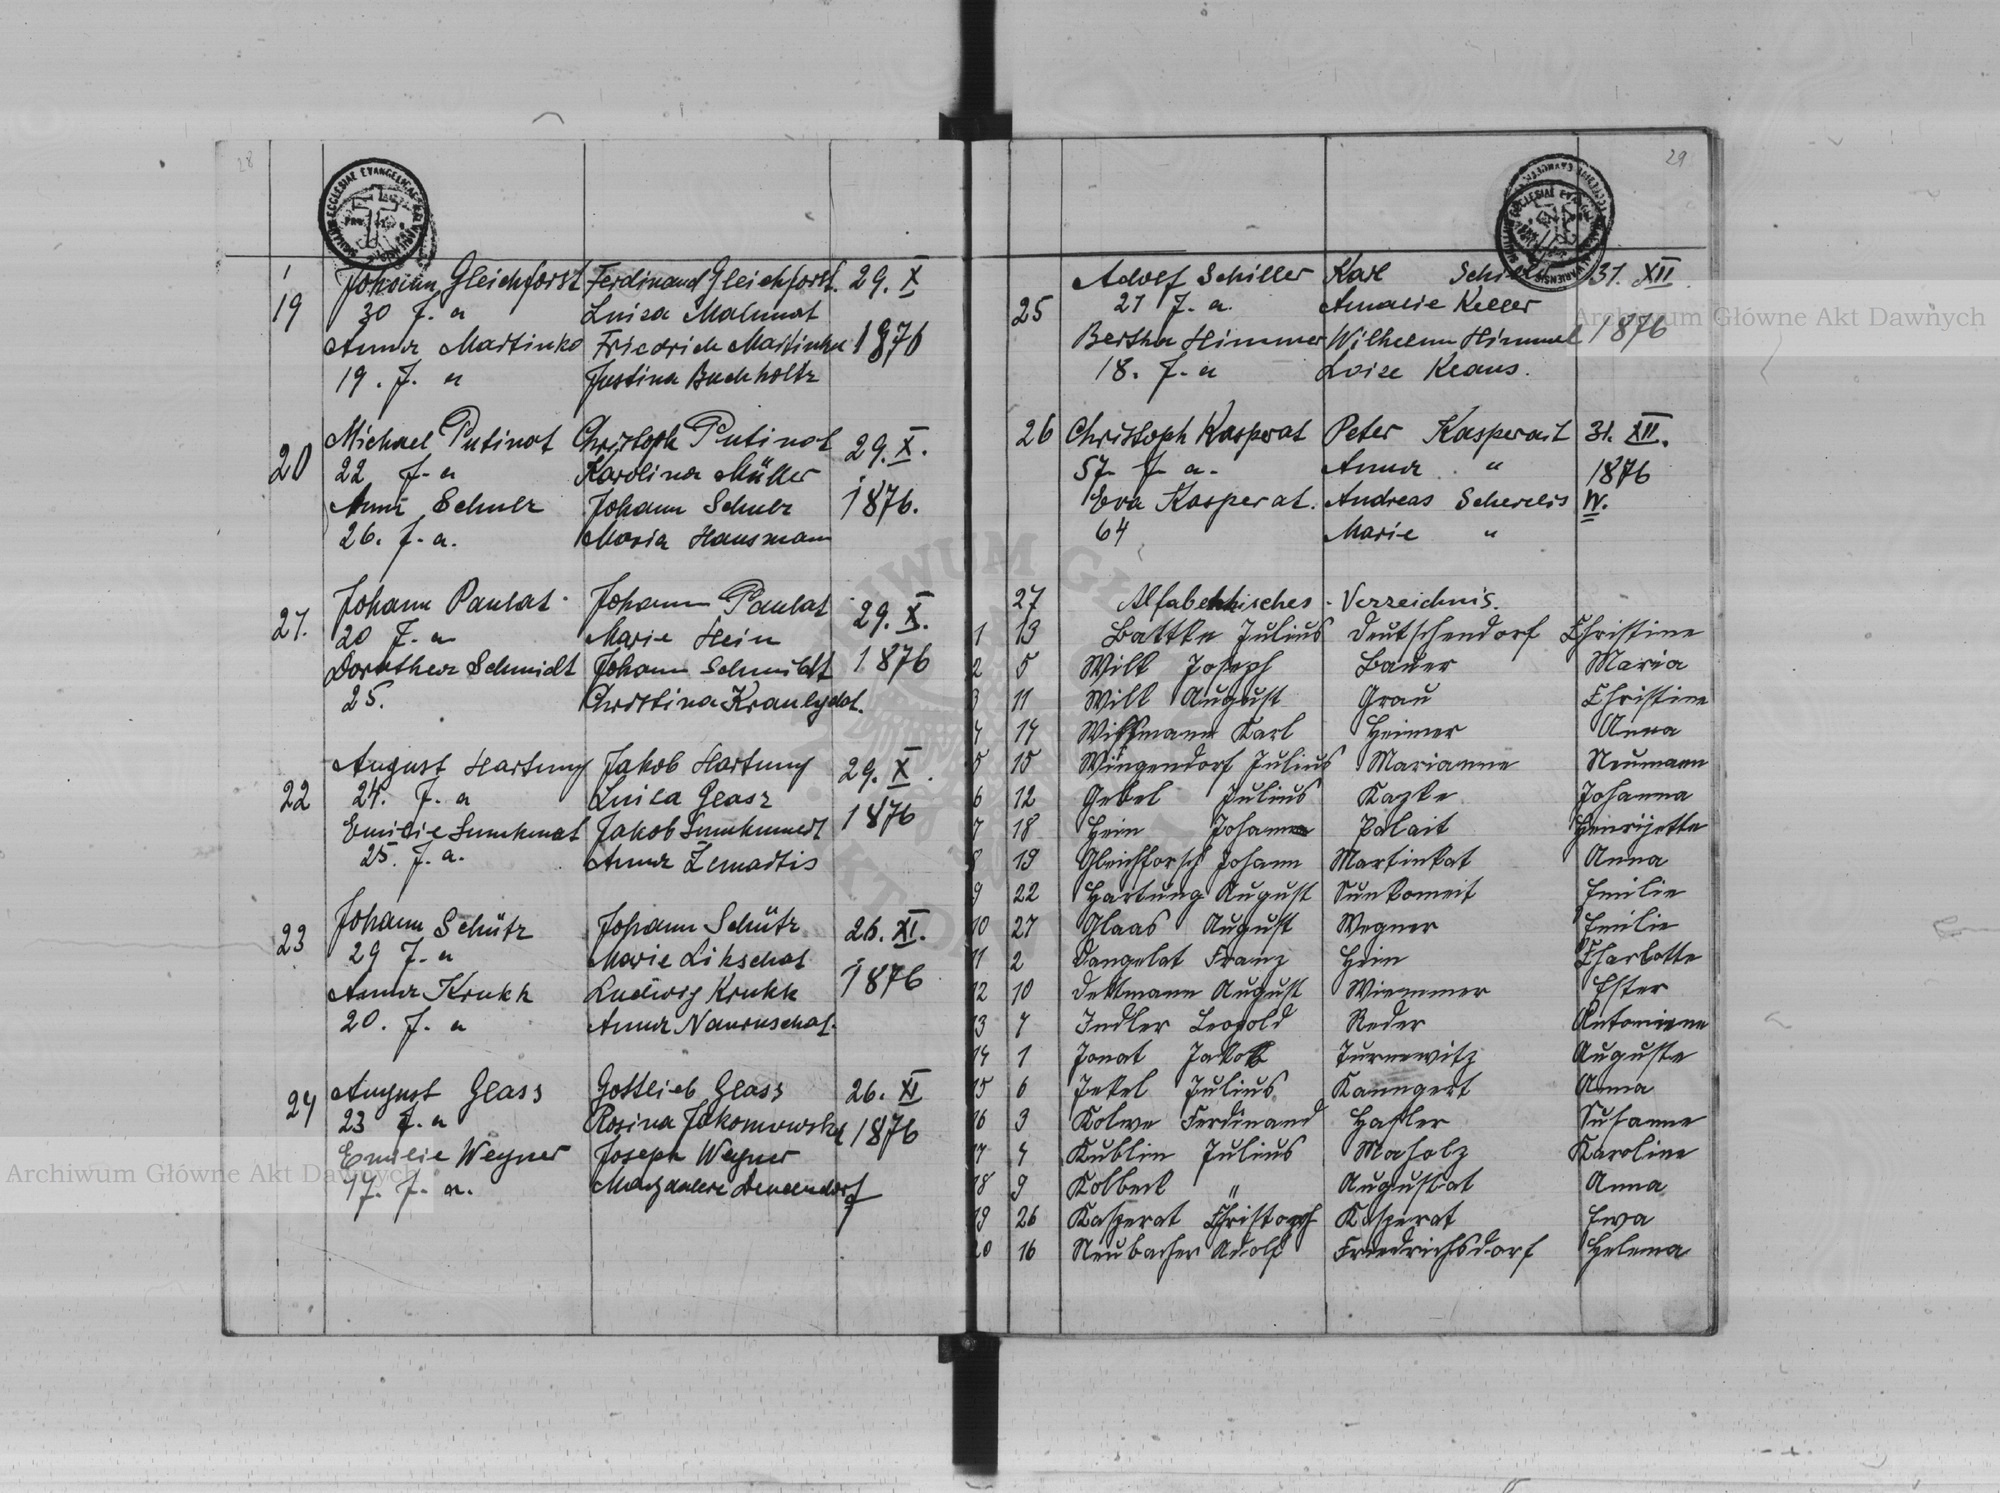 28
19 Johann Gleichforst Ferdinand Gleichforst. 29. X
30 J. a Luisa Malunat
Anna Martinko Friedrich Martinko 1876
19. J. a Justina Buchholtz
20 Michael Putinat Christoph Putinat 29. X.
22 J. a Karolina Müller
Anna Schulz Johann Schulz 1876.
26. J. a. Maria Hausmann
21. Johann Paulat Johann Paulat 29. X.
20 J. a Marie Hein
Dorothea Schmidt Johann Schmidt 1876
25. Christina
22 August Hartung Jakob Hartung 29. X.
24. J. a Luisa Glasz 1876
Emilie Jakob
25. J. a. Anna Zemaitis
23 Johann Schütz Johann Schütz 26. XI.
29 J. a Marie Likschat
Anna Krukk Ludwig Krukk 1876
20. J. a Anna
24 August Glass Gottlieb Glass 26. XI
23 J. a Rosina 1876
Emilie Wegner Joseph Wegner
17. J. a. Magdalene
29
25 Adolf Schiller Karl 31. XII.
21 J. a. Amalie Keller
Bertha Himmel Wilhelm Himmel 1876
18. J. a Loise Kraus.
26 Christoph Kasperat Peter Kasperait 31. XII.
57 J. a. Anna " 1876
Eva Kasperat. Andreas IV.
64 Marie "
27 Alfabethisches Verzeichnis.
1 13 Battke Julius Deutschendorf Christine
2 5 Wilk Joseph Bauer Maria
3 11 Wilk August Grau Christine
4 14 Wissmann Karl Heimer Anna
5 15 Wingendorf Julius Marianne Neumann
6 12 Gebel Julius Kazke Johanna
7 18 Hein Johann Palait Henrijette
8 19 Gleichforsch Johann Martinkat Anna
9 22 Hartung August Sunkomeit Emilie
10 27 Glaas August Wegner Emilie
11 2 Dangelat Franz Hein Charlotte
12 10 Dettmann August Wiemmer Ester
13 7 Indler Leopold Reder Antonine
14 1 Jonat Jakob Turnewitz Auguste
15 6 Jekel Julius Kanngert Anna
16 3 Kolwe Ferdinand Hasler Susanne
17 4 Kublin Julius Maholz Karoline
18 9 Kolbeck " Augustat Anna
19 26 Kasperat Christoph Kasperat Ewa
20 16 Neubacher Adolf Friedrichsdorf Helena
Archiwum Główne Akt Dawnych
Archiwum Główne Akt Dawnych